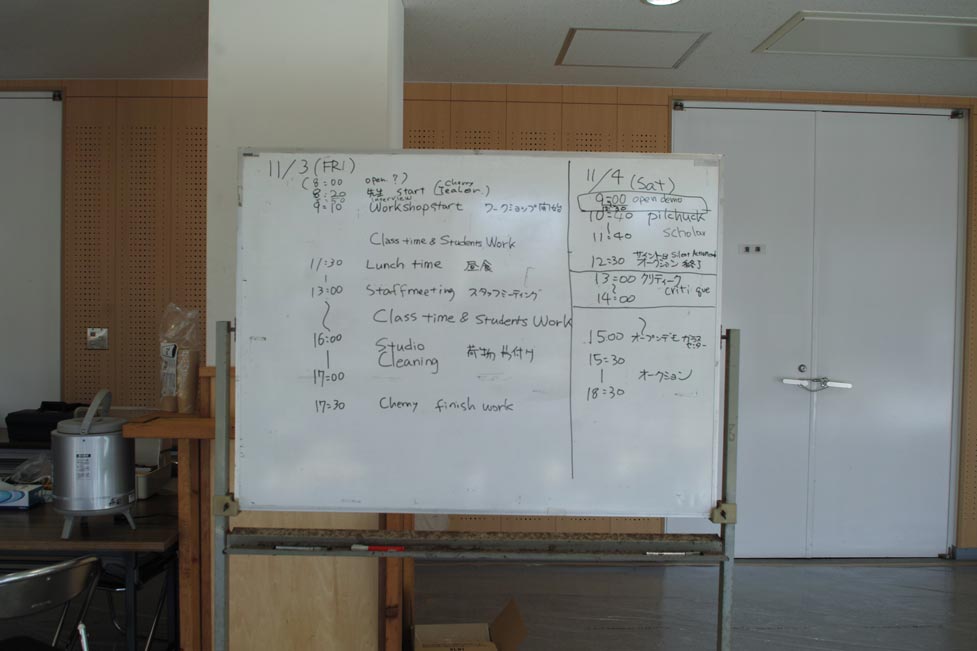 11/3 (FRI)
(8:00 open?)
8:20 先生 start (Cherry Tealor.)
9:10 Workshop start ワークショップ開始
interview
Class time & Students Work
11:30 Lunch time 昼食
13:00 Staff meeting スタッフミーティング
Class time & Students Work
16:00 Studio
Cleaning 荷物片付け
17:00
17:30 Cherry finish work
11/4 (Sat)
9:00 open demo
10:40 pilchuck
11:40 scholar
12:30 サイレント Silent
オークション 終了
13:00 クリティーク
14:00 critique
15:00 オープンデモ ガラス
センター
15:30
オークション
18:30